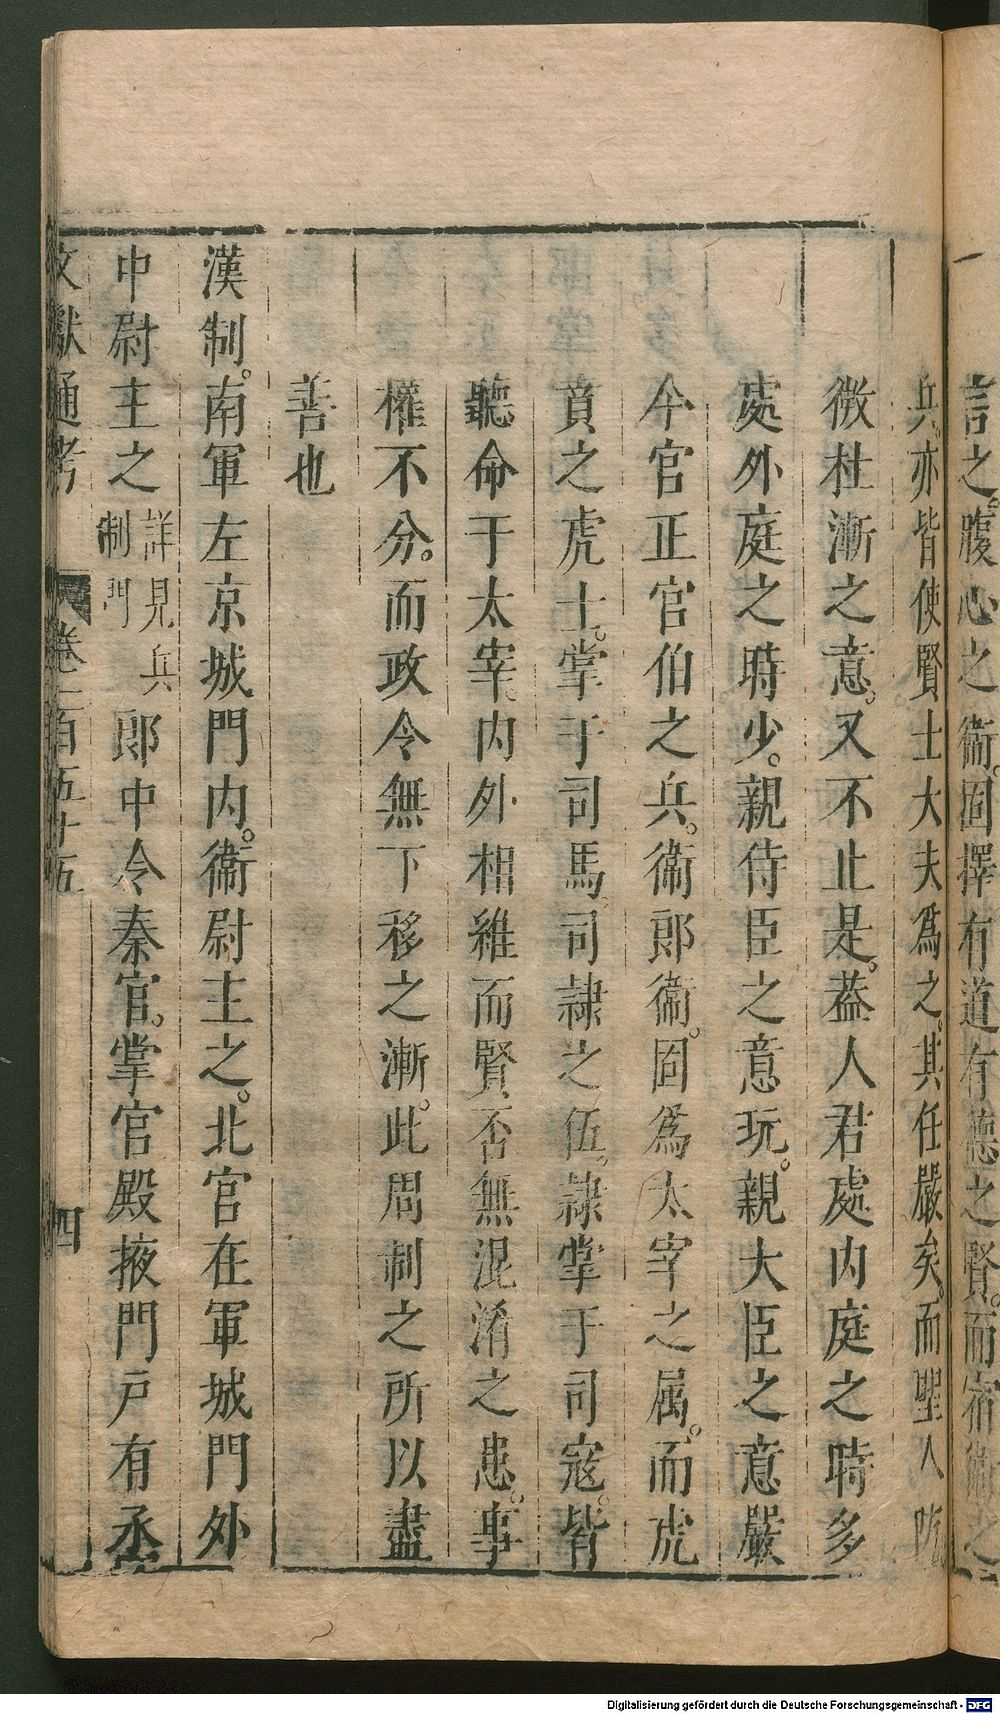 言之腹心之衞。固擇有道有德之賢。而宿衞之
兵。亦皆使賢士大夫爲之。其任嚴矣。而聖人防
微杜漸之意。又不止是。葢人君處内庭之時多
處外庭之時少。親侍臣之意玩。親大臣之意嚴
今官正官伯之兵。衞郎衞。固爲太宰之属。而虎
賁之虎士。掌于司馬。司隷之伍。隷掌于司宼。皆
聽命于太宰。内外相維而賢否無混淆之患。事
權不分。而政令無下移之漸。此周制之所以盡
善也
漢制。南軍左京城門内。衞尉主之。北官在軍城門外
中尉主之詳見兵制門郎中令秦官。掌官殿掖門戸有丞
文獻通考 卷一百五十五 四
Digitalisierung gefördert durch die Deutsche Forschungsgemeinschaft - DFG